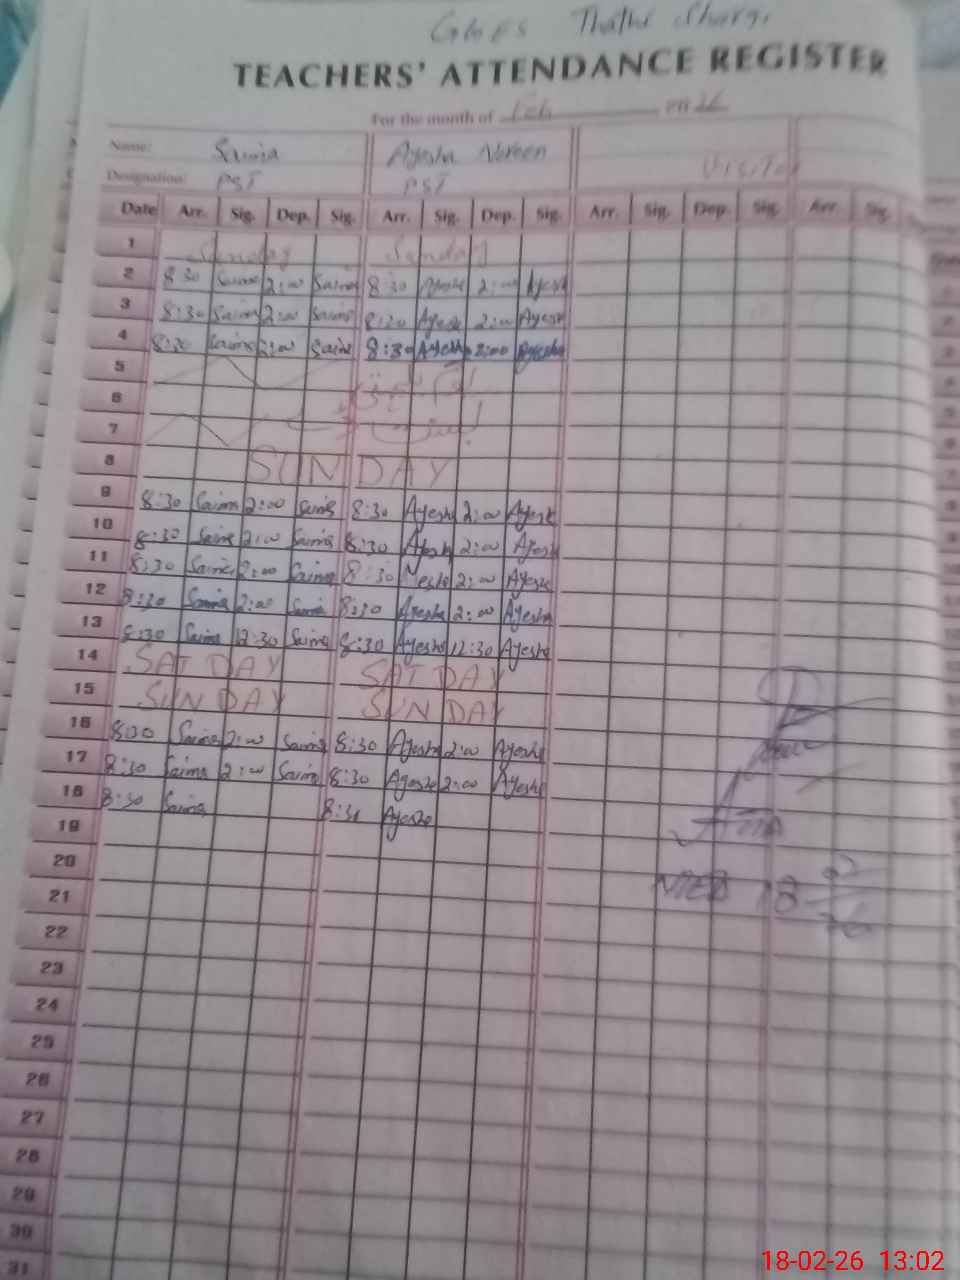 GGPS Thathi
TEACHERS' ATTENDANCE REGISTER
For the month of Feb 2026
Name: Saima Ayesha Noreen
Designation: PST PST Visitor
Date Arr. Sig. Dep. Sig. Arr. Sig. Dep. Sig. Arr. Sig. Dep. Sig. Arr. Sig.
1 Sunday Sunday
2 8:30 Saima 2:00 Saima 8:30 Ayesha 2:00 Ayesha
3 8:30 Saima 2:00 Saima 8:30 Ayesha 2:00 Ayesha
4 8:30 Saima 2:00 Saima 8:30 Ayesha 2:00 Ayesha
5
6
7
8 SUNDAY
9 8:30 Saima 2:00 Saima 8:30 Ayesha 2:00 Ayesha
10 8:30 Saima 2:00 Saima 8:30 Ayesha 2:00 Ayesha
11 8:30 Saima 2:00 Saima 8:30 Ayesha 2:00 Ayesha
12 8:30 Saima 2:00 Saima 8:30 Ayesha 2:00 Ayesha
13 8:30 Saima 12:30 Saima 8:30 Ayesha 12:30 Ayesha
14 SATDAY SATDAY
15 SUNDAY SUNDAY
16 8:30 Saima 2:00 Saima 8:30 Ayesha 2:00 Ayesha
17 8:30 Saima 2:00 Saima 8:30 Ayesha 2:00 Ayesha
18 8:30 Saima 8:30 Ayesha
19
20
21 18-2-26
22
23
24
25
26
27
28
29
30
31
18-02-26 13:02